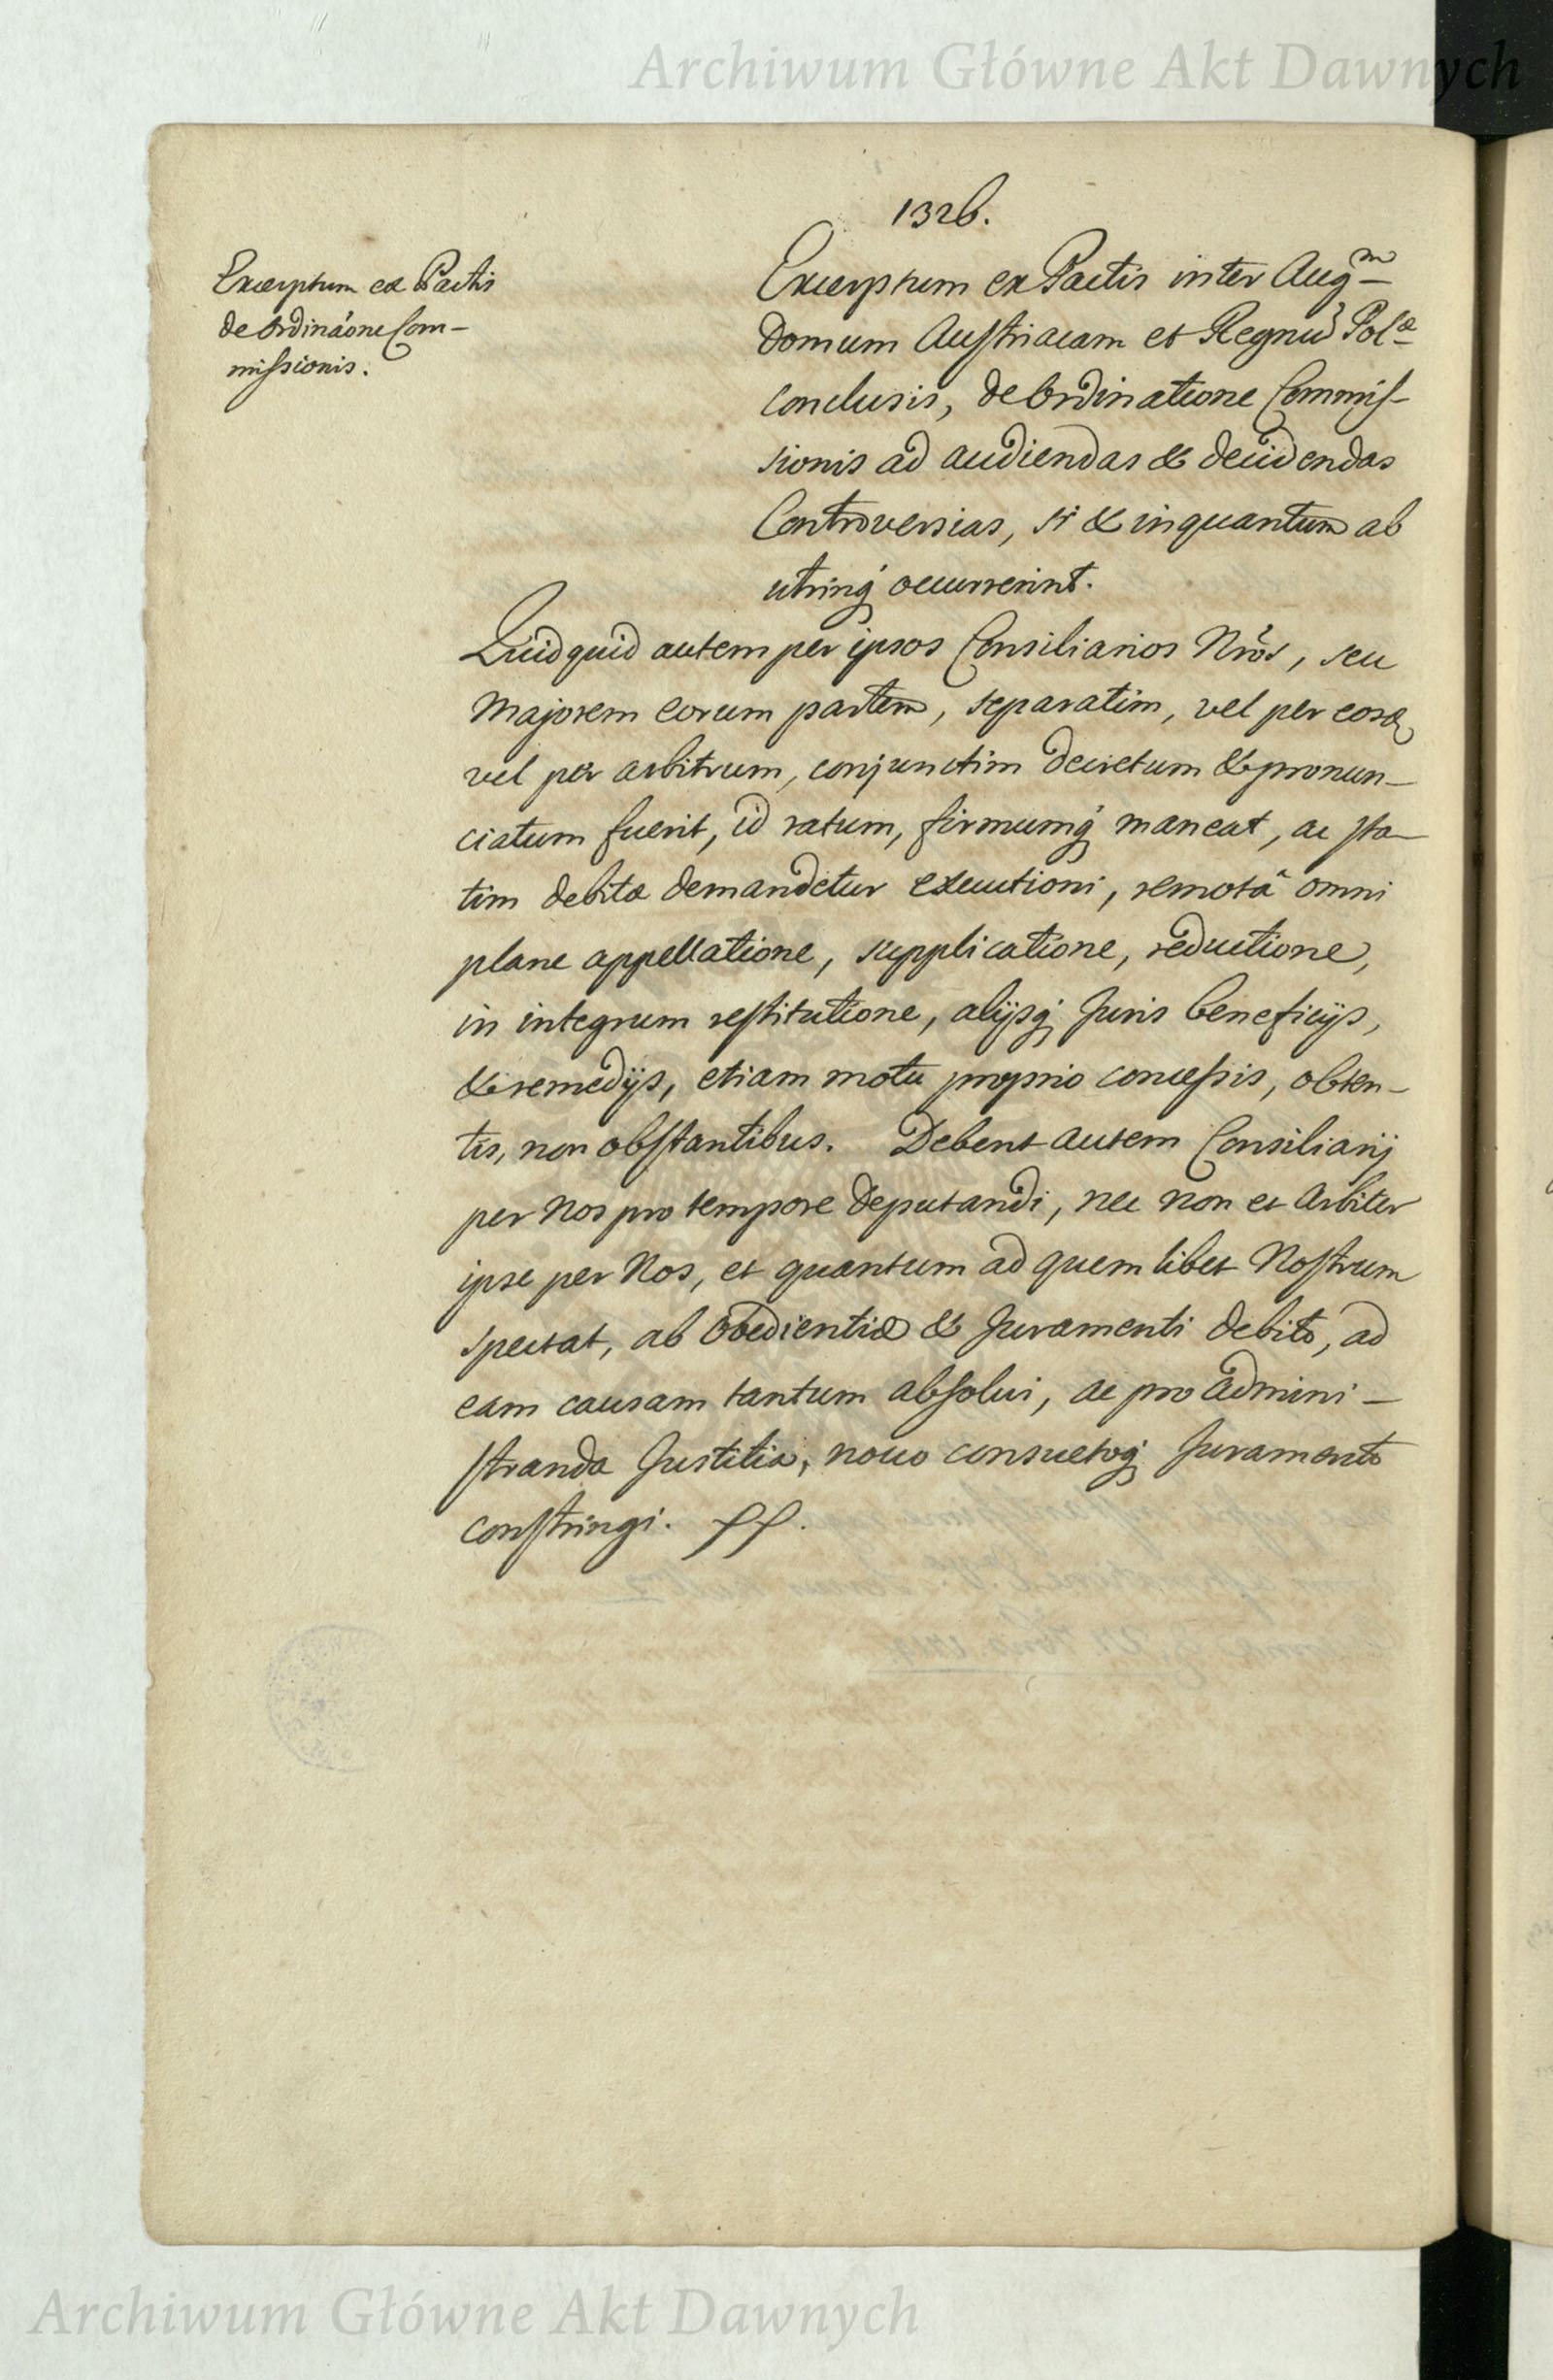 Archiwum Główne Akt Dawnych
1326.
Excerptum ex Pactis
de Ordinaōne Com-
missionis.
Excerptum ex Pactis inter Augm
Domum Austriacam et Regnū Polæ
conclusis, de Ordinatione Commis-
sionis ad audiendas & decidendas
Controversias, si & inquantum ab
utrinq́ occurrerint.
Quidquid autem per ipsos Consiliarios Nrōs, seu
Majorem eorum partem, separatim, vel per eosd
vel per arbitrum, conjunctim decretum & pronun-
ciatum fuerit, id ratum, firmumq́ maneat, ac sta-
tim debitæ demandetur executioni, remotâ omni
plane appellatione, supplicatione, reductione,
in integrum restitutione, alijsq́ Juris beneficijs,
& remedijs, etiam motu proprio concessis, obten-
tis, non obstantibus. Debent autem Consiliarij
per Nos pro tempore deputandi, nec non et Arbiter
ipse per Nos, et quantum ad quem libet Nostrum
spectat, ab Obedientiæ & Juramenti debito, ad
eam causam tantum absolui, ac pro admini-
stranda Justitia, nouo consuetoq́ Juramento
constringi.
Archiwum Główne Akt Dawnych